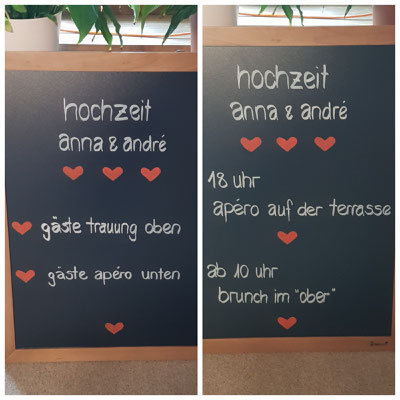 hochzeit
anna & andré
gäste trauung oben
gäste apéro unten
hochzeit
anna & andré
18 uhr
apéro auf der terrasse
ab 10 uhr
brunch im "ober"